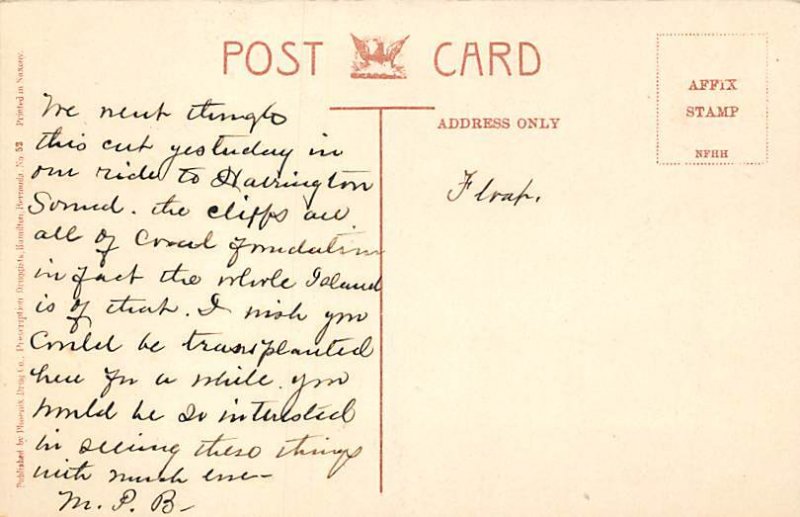 POST CARD
ADDRESS ONLY
AFFIX
STAMP
NFHH
Published by Phoenix Drug Co., Prescription Druggists, Hamilton, Bermuda. No. 52 Printed in Saxony.
We went through
this cut yesterday in
our ride to Harrington
Sound. the cliffs are
all of Coral foundation
in fact the whole Island
is of that. I wish you
Could be transplanted
here for a while. you
would be so interested
in seeing these things
with much love-
M. P. B-